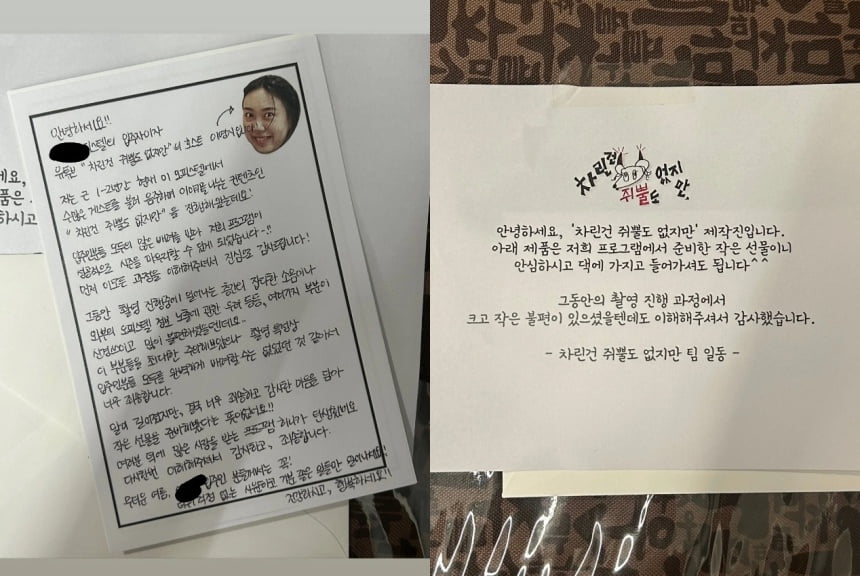 안녕하세요!!
스텔의 입주자이자
유튜브 "차린건 쥐뿔도 없지만"의 호스트 이영지입니다
저는 근 1-2년간 현재 이 오피스텔에서
수많은 게스트를 불러 음주하며 이야기를 나누는 컨텐츠인
"차린건 쥐뿔도 없지만"을 진행해왔는데요!
입주민분들 모두의 많은 배려를 받아 저희 프로그램이
성공적으로 시즌을 마무리할 수 있게 되었습니다~!!
먼저 이 모든 과정을 이해해주셔서 진심으로 감사드립니다!
그동안 촬영 진행중에 일어나는 층간의 잡다한 소음이나
외부의 오피스텔 정보 노출에 관한 우려 등등, 여러가지 부분이
신경쓰이고 많이 불편하셨을텐데요..
이 부분들을 최대한 주의해보았으나 촬영 특성상
입주민분들 모두를 완벽하게 배려할 수는 없었던 것 같아서
너무 죄송합니다.
말이 길어졌지만, 결국 너무 죄송하고 감사한 마음을 담아
작은 선물을 준비해봤다는 뜻이었어요!!
여러분 덕에 많은 사랑을 받는 프로그램 하나가 탄생했네요
다시한번 이해해주셔서 감사하고, 죄송합니다.
무더운 여름, 입주민 분들께서는 꼭!
걱정 없는 시원하고 기분 좋은 일들만 일어나세요!
건강하시고, 행복하세요!!
차린건 쥐뿔도 없지만.
안녕하세요, '차린건 쥐뿔도 없지만' 제작진입니다.
아래 제품은 저희 프로그램에서 준비한 작은 선물이니
안심하시고 댁에 가지고 들어가셔도 됩니다^^
그동안의 촬영 진행 과정에서
크고 작은 불편이 있으셨을텐데도 이해해주셔서 감사했습니다.
- 차린건 쥐뿔도 없지만 팀 일동 -